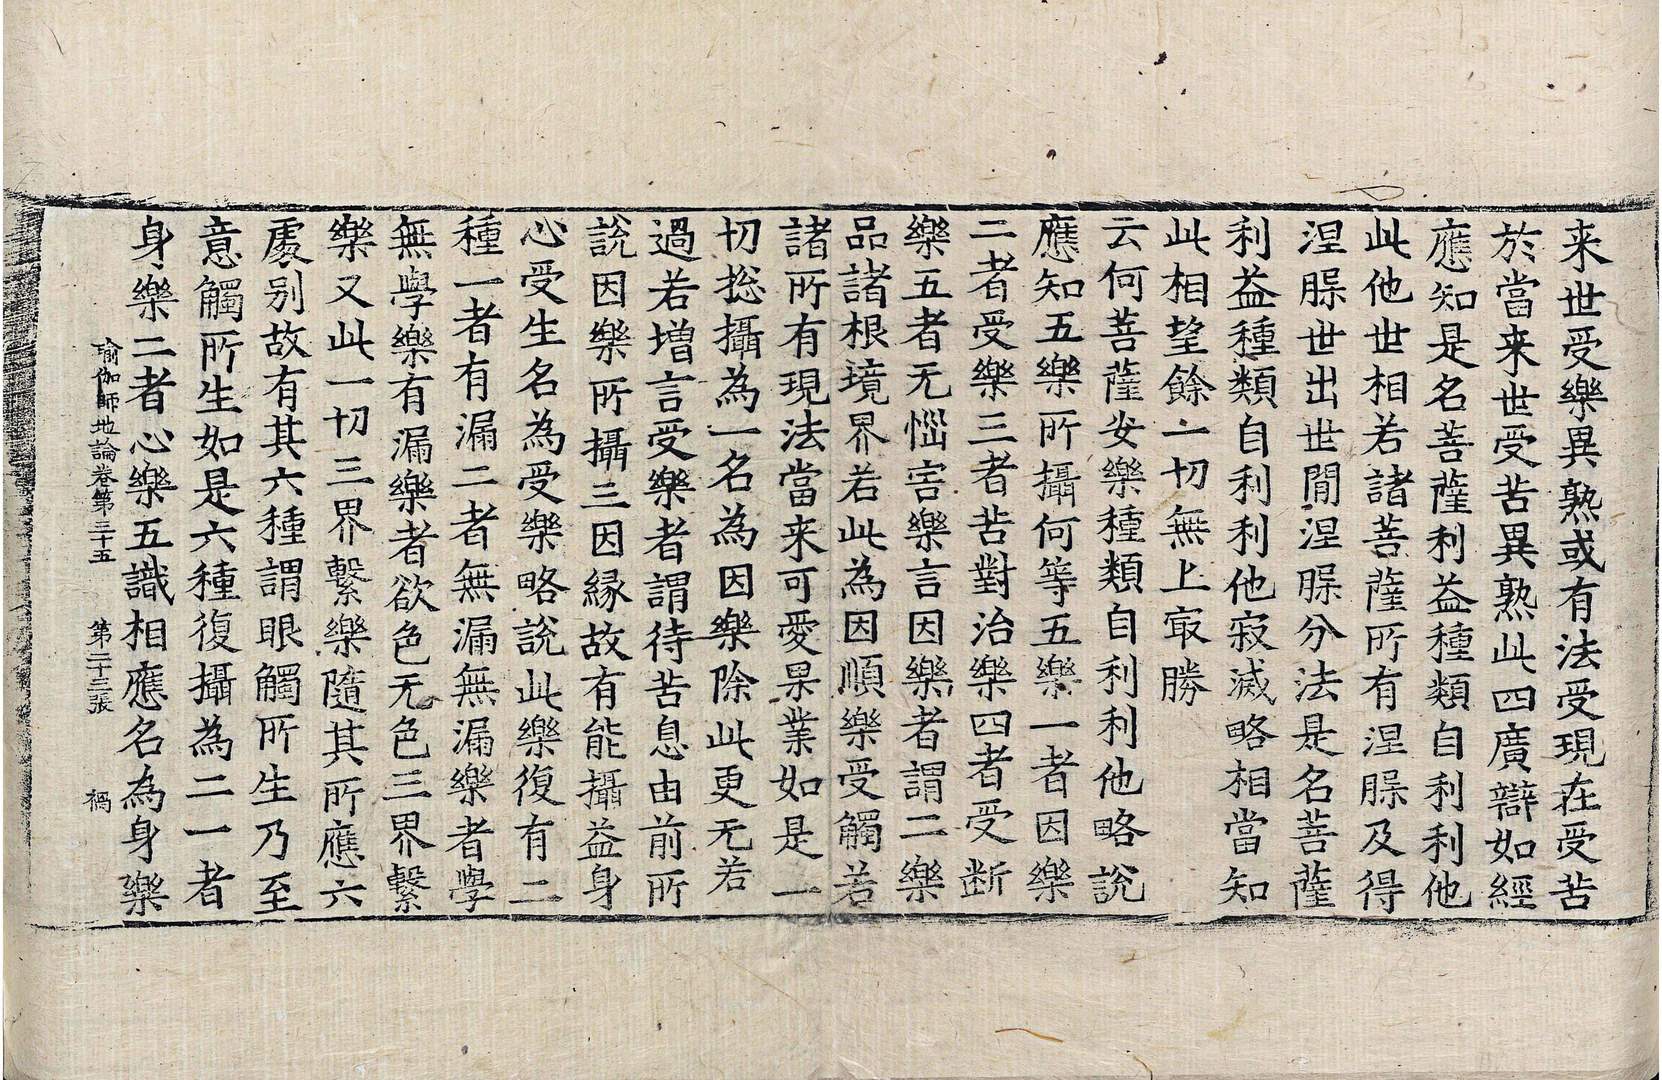 来世受樂異熟或有法受現在受苦
於當来世受苦異熟此四廣辯如經
應知是名菩薩利益種類自利利他
此他世相若諸菩薩所有涅槃及得
涅槃世出世間涅槃分法是名菩薩
利益種類自利利他寂滅略相當知
此相望餘一切無上㝡勝
云何菩薩安樂種類自利利他略說
應知五樂所攝何等五樂一者因樂
二者受樂三者苦對治樂四者受断
樂五者无惱害樂言因樂者謂二樂
品諸根境界若此為因順樂受觸若
諸所有現法當来可愛果業如是一
切捴攝為一名為因樂除此更无若
過若增言受樂者謂待苦息由前所
說因樂所攝三因緣故有能攝益身
心受生名為受樂略說此樂復有二
種一者有漏二者無漏無漏樂者學
無學樂有漏樂者欲色无色三界繫
樂又此一切三界繫樂隨其所應六
處别故有其六種謂眼觸所生乃至
意觸所生如是六種復攝為二一者
身樂二者心樂五識相應名為身樂
瑜伽師地論卷第三十五 第二十三張 禍